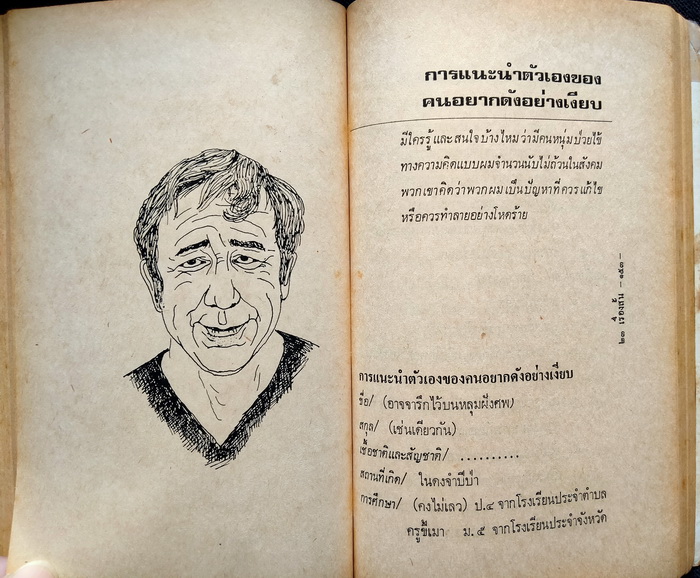 การแนะนำตัวเองของ
คนอยากดังอย่างเงียบ
มีใครรู้และสนใจบ้างไหมว่ามีคนหนุ่มป่วยไข้
ทางความคิดแบบผมจำนวนนับไม่ถ้วนในสังคม
พวกเขาคิดว่าพวกผมเป็นปัญหาที่ควรแก้ไข
หรือควรทำลายอย่างโหดร้าย
๒๓ เรื่องสั้น – ๑๕๓ –
การแนะนำตัวเองของคนอยากดังอย่างเงียบ
ชื่อ/ (อาจจารึกไว้บนหลุมฝังศพ)
สกุล/ (เช่นเดียวกัน)
เชื้อชาติและสัญชาติ/ ..........
สถานที่เกิด/ ในดงจำปีป่า
การศึกษา/ (คงไม่เลว) ป.๔ จากโรงเรียนประจำตำบล
ครูขี้เมา ม.๕ จากโรงเรียนประจำจังหวัด